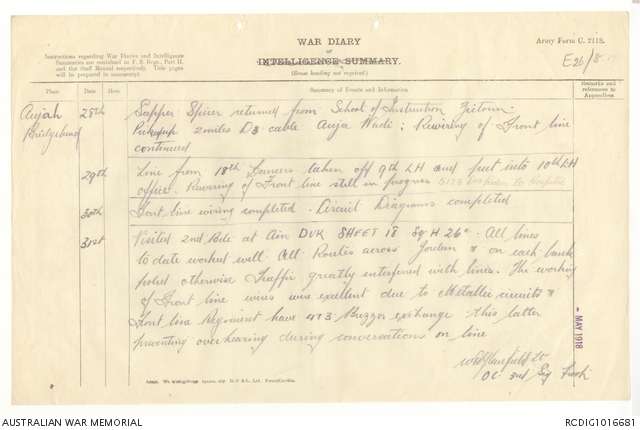 WAR DIARY
or
INTELLIGENCE SUMMARY.
(Erase heading not required.)
Army Form C. 2118.
Instructions regarding War Diaries and Intelligence
Summaries are contained in F. S. Regs., Part II.
and the Staff Manual respectively. Title pages
will be prepared in manuscript.
E26/8
Place Date Hour Summary of Events and Information Remarks and references to Appendices
Aujah 28th Sapper Spicer returned from School of Instruction Zeitoun.
Bridgehead Pickup 2 miles D3 cable Auja Wadi; Rewiring of Front line
continued
29th Line from 18th Lancers taken off 9th LH and put into 10th LH
office. Rewiring of Front line still in progress
30th Front line wiring completed. Circuit Diagrams completed
31st Visited 2nd Bde at Ain DUK SHEET 18 Sq H. 26c. All lines
to date worked well. All Routes across Jordan & on each bank
poled otherwise Traffic greatly interfered with lines. The working
of Front line wires was exellent due to Metallic circuits &
Front line Regiment have 4+3 Buzzer exchange this latter
preventing overhearing during conversations on line
Lt
OC 3rd Sig
MAY 1918
AUSTRALIAN WAR MEMORIAL
RCDIG1016681